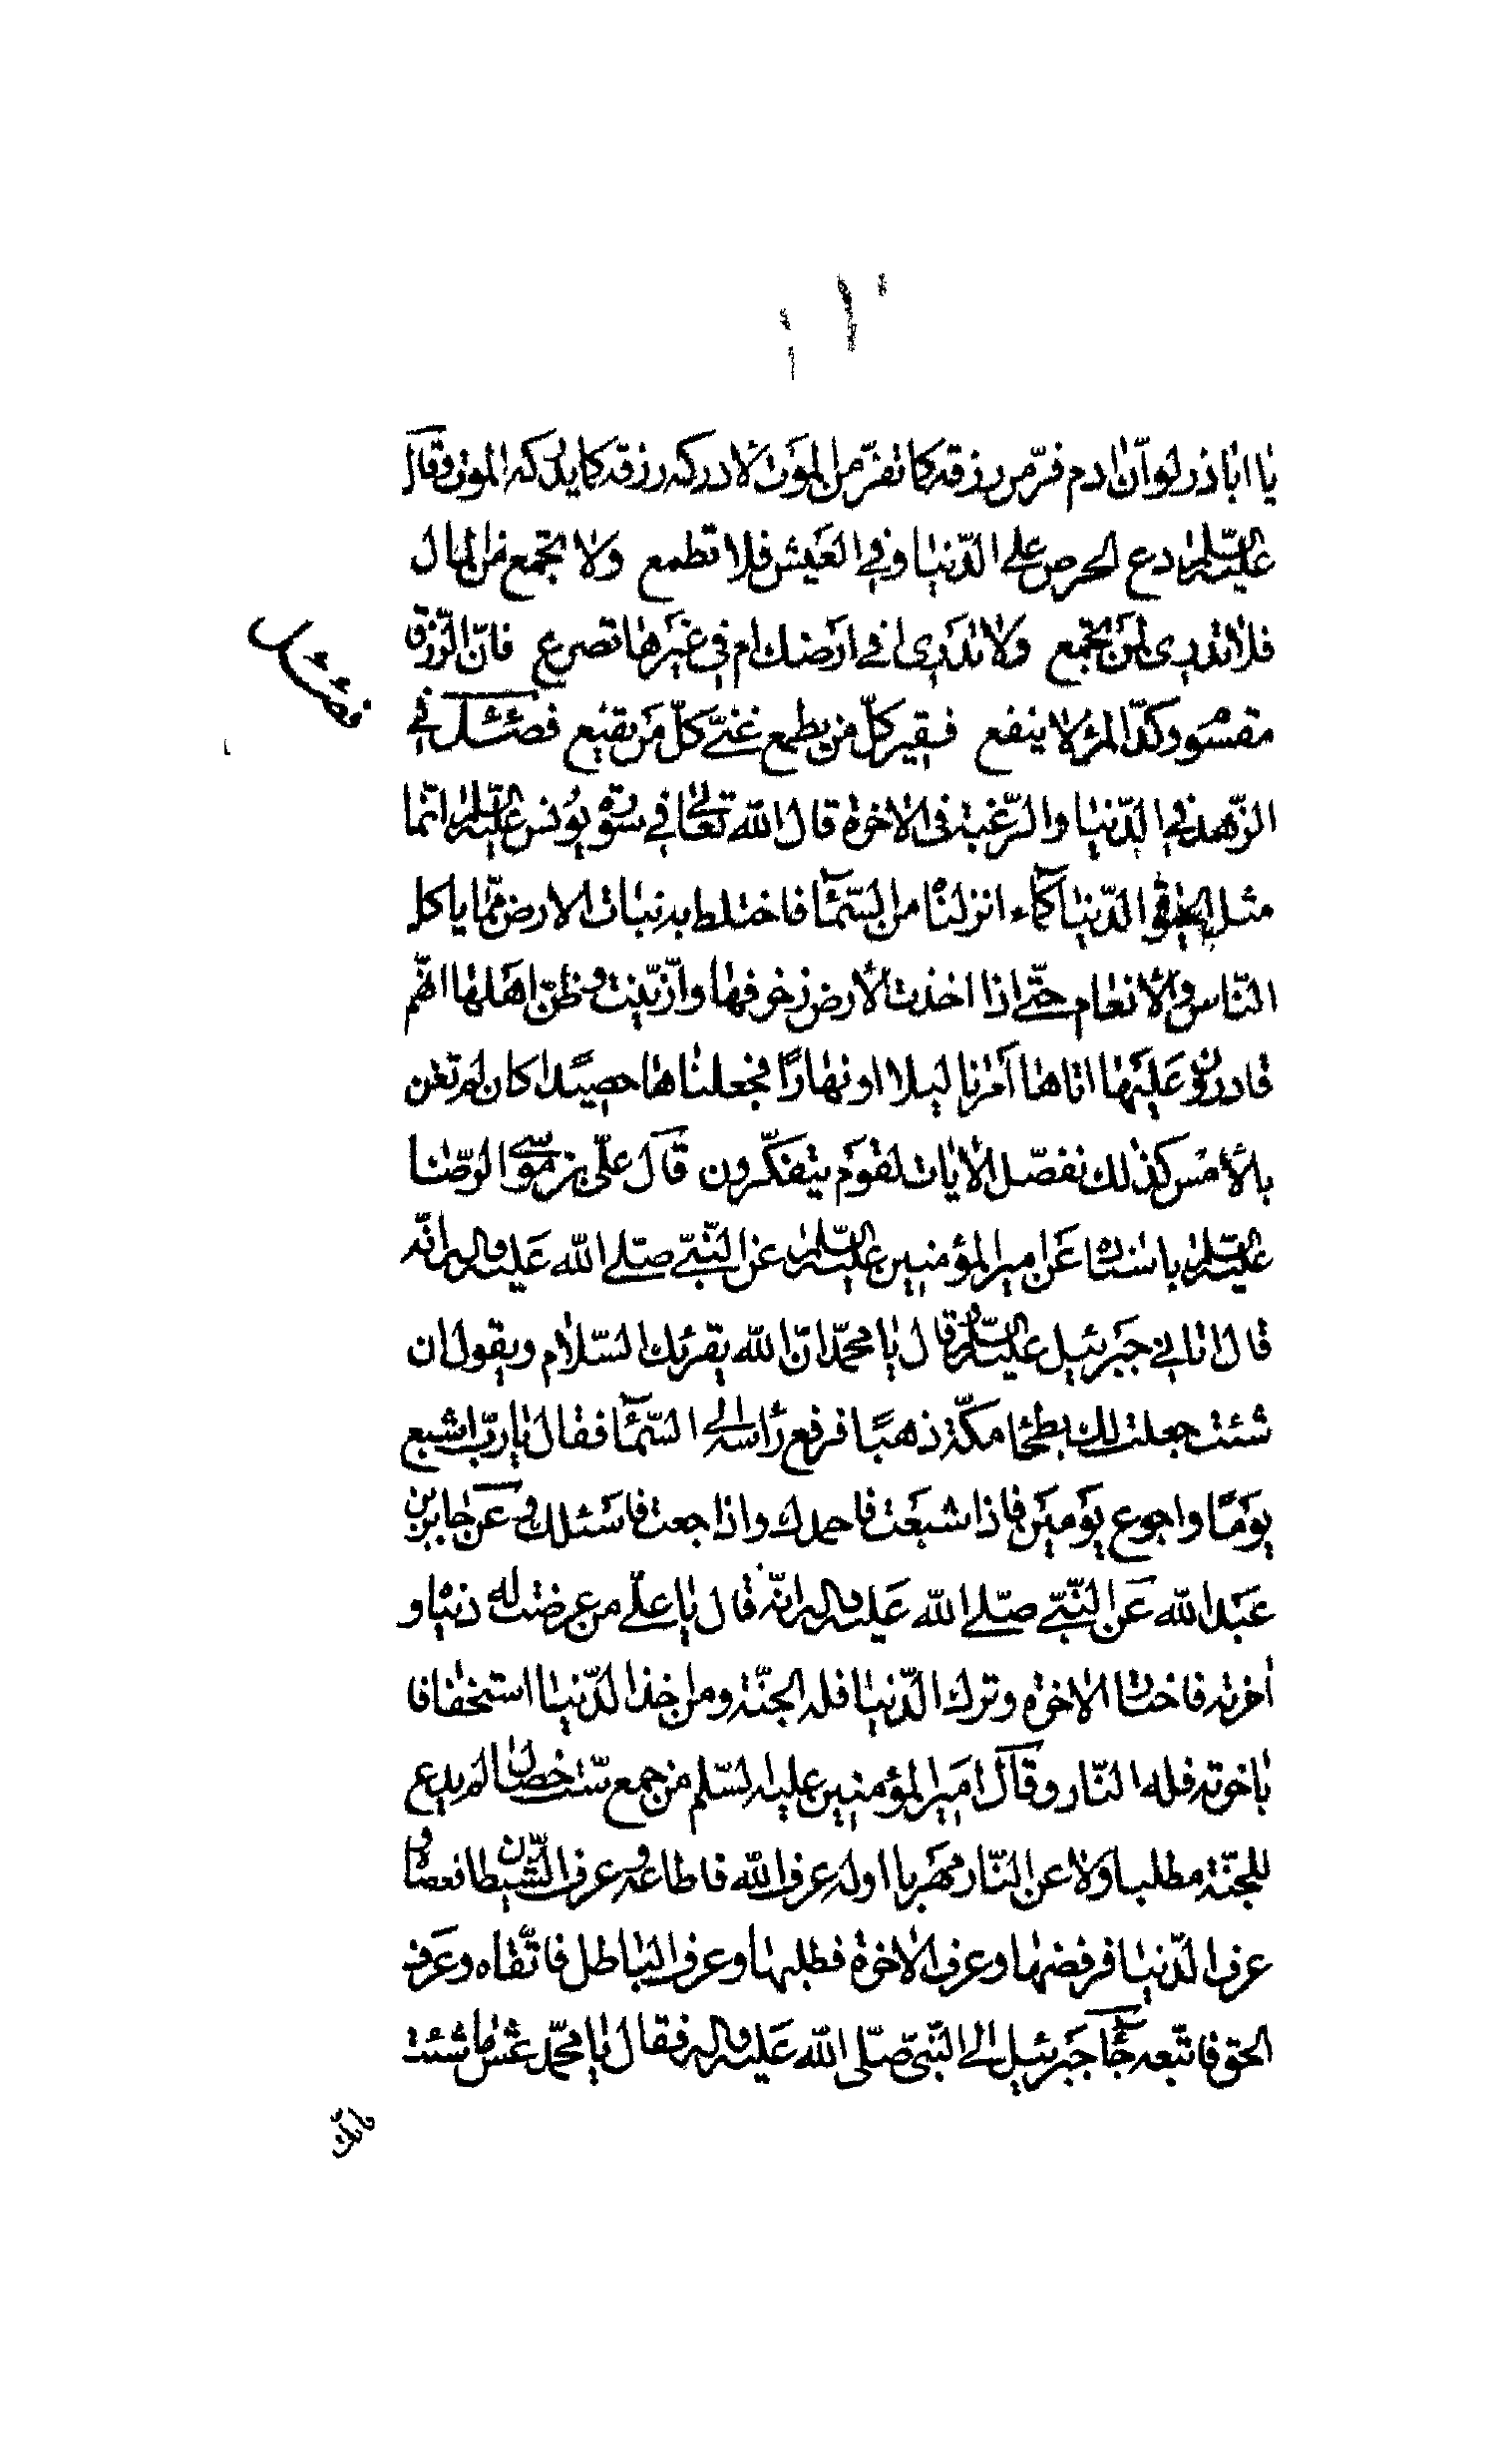 يا اباذر لو انّ ادم فرّ من رزقه كما تفرّ من الموت لادركه رزقه كما يدركه الموت وقال
عليه السلم دع الحرص على الدّنيا وفي العيش فلا تطمع ولا تجمع من المال
فلا تدرى لمن تجمع ولا تدرى افي ارضك ام في غيرها تصرع فانّ الرّزق
مقسوم وكدّ المرء لا ينفع فقير كلّ من يطمع غنيّ كلّ من يقنع فصــل في
فصــل
الزّهد في الدّنيا والرّغبة في الاخرة قال الله تعالى في سورة يونس عليه السلم انّما
مثل الحيوة الدّنيا كماء انزلناه من السّماء فاختلط به نبات الارض ممّا ياكل
النّاس والانعام حتّى اذا اخذت الارض زخرفها وازّيّنت وظنّ اهلها انّهم
قادرون عليها اتاها امرنا ليلا او نهارًا فجعلناها حصيدًا كان لم تغن
بالامس كذلك نفصّل الايات لقوم يتفكّرون قال علىّ بن موسى الرّضا
عليه السلم باسناده عن امير المؤمنين عليه السلم عن النّبيّ صلّى الله عليه واله انّه
قال اتاني جبرئيل عليه السلم قال يا محمّد انّ الله يقرئك السّلام ويقول ان
شئت جعلت لك بطحاء مكّة ذهبًا فرفع رأسه الى السّماء فقال يا ربّ اشبع
يومًا واجوع يومين فاذا شبعت فاحمدك واذا جعت فاسئلك وعن جابر بن
عبد الله عن النّبيّ صلّى الله عليه واله انّه قال يا علىّ من عرضت له دنياه و
اخرته فاختار الاخرة وترك الدّنيا فله الجنّة ومن اخذ الدّنيا استخفافا
باخرته فله النّار وقال امير المؤمنين عليه السّلم من جمع ستّ خصال لم يدع
للجنّة مطلبا ولا عن النّار مهربا اوله عرف الله فاطاعه وعرف الشّيطان فعصاه و
عرف الدّنيا فرفضها وعرف الاخرة فطلبها وعرف الباطل فاتّقاه وعرف
الحق فاتّبعه جاء جبرئيل الى النّبيّ صلّى الله عليه واله فقال يا محمّد عش ما شئت
فانّك